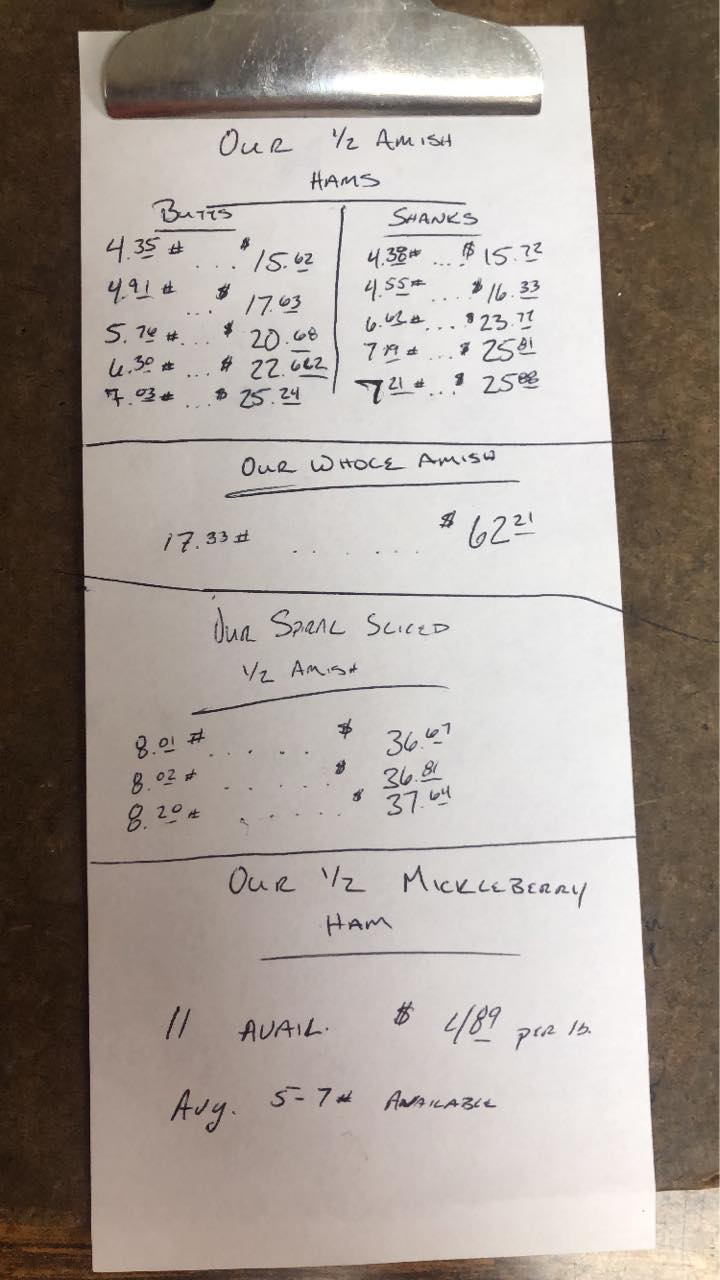 OUR 1/2 AMISH
HAMS
BUTTS
4.35 # ... $ 15.62
4.91 # ... $ 17.63
5.76 # ... $ 20.68
6.30 # ... $ 22.662
7.03 # ... $ 25.24
SHANKS
4.38# ... $ 15.72
4.55# .... $ 16.33
6.63 # ... $ 23.77
7 19 # ... $ 25 81
7 21 # ... $ 25 88
OUR WHOLE AMISH
17.33 # . . . . . . $ 62 21
OUR SPIRAL SLICED
1/2 AMISH
8.01 # . . . . . $ 36.67
8.02 # . . . . . . $ 36.81
8.20 # . . . . . . $ 37.64
OUR 1/2 MICKLEBERRY
HAM
11 AVAIL. $ 4 89 per lb.
Avg. 5-7 # AVAILABLE